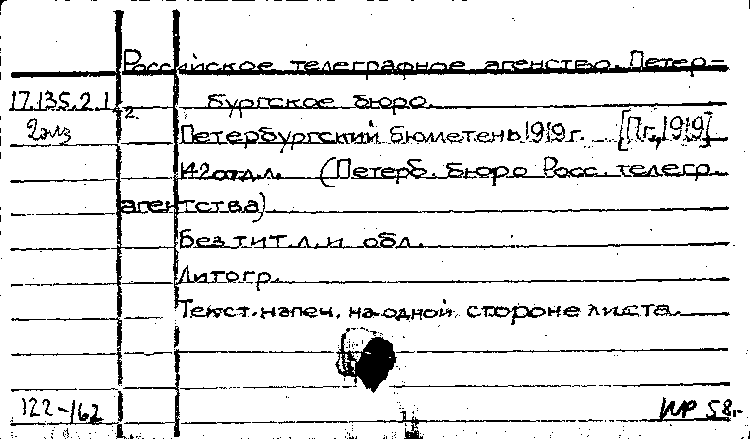 Российское телеграфное агенство. Петер-
17.135.2.1 бургское бюро.
2.
2экз Петербургский бюлетень 1919 г. [Пг., 1919]
142 отд. л. (Петерб. бюро Росс. телегр.
агентства)
Без тит. л. и обл.
Литогр.
Текст. напеч. на одной стороне листа.
122-162